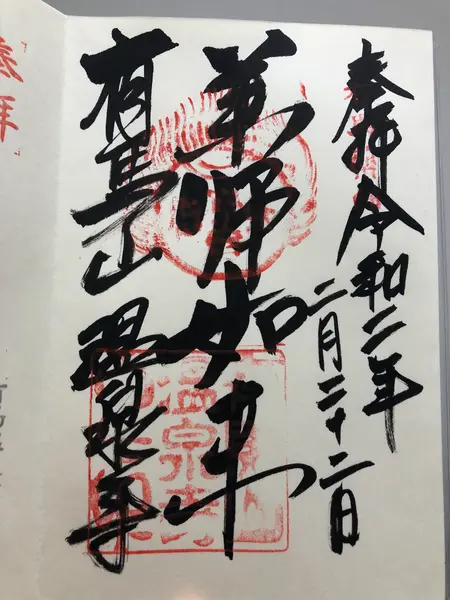 奉拝 令和二年
二月二十二日
薬師如来
有馬山 温泉寺
温泉寺
奉拝